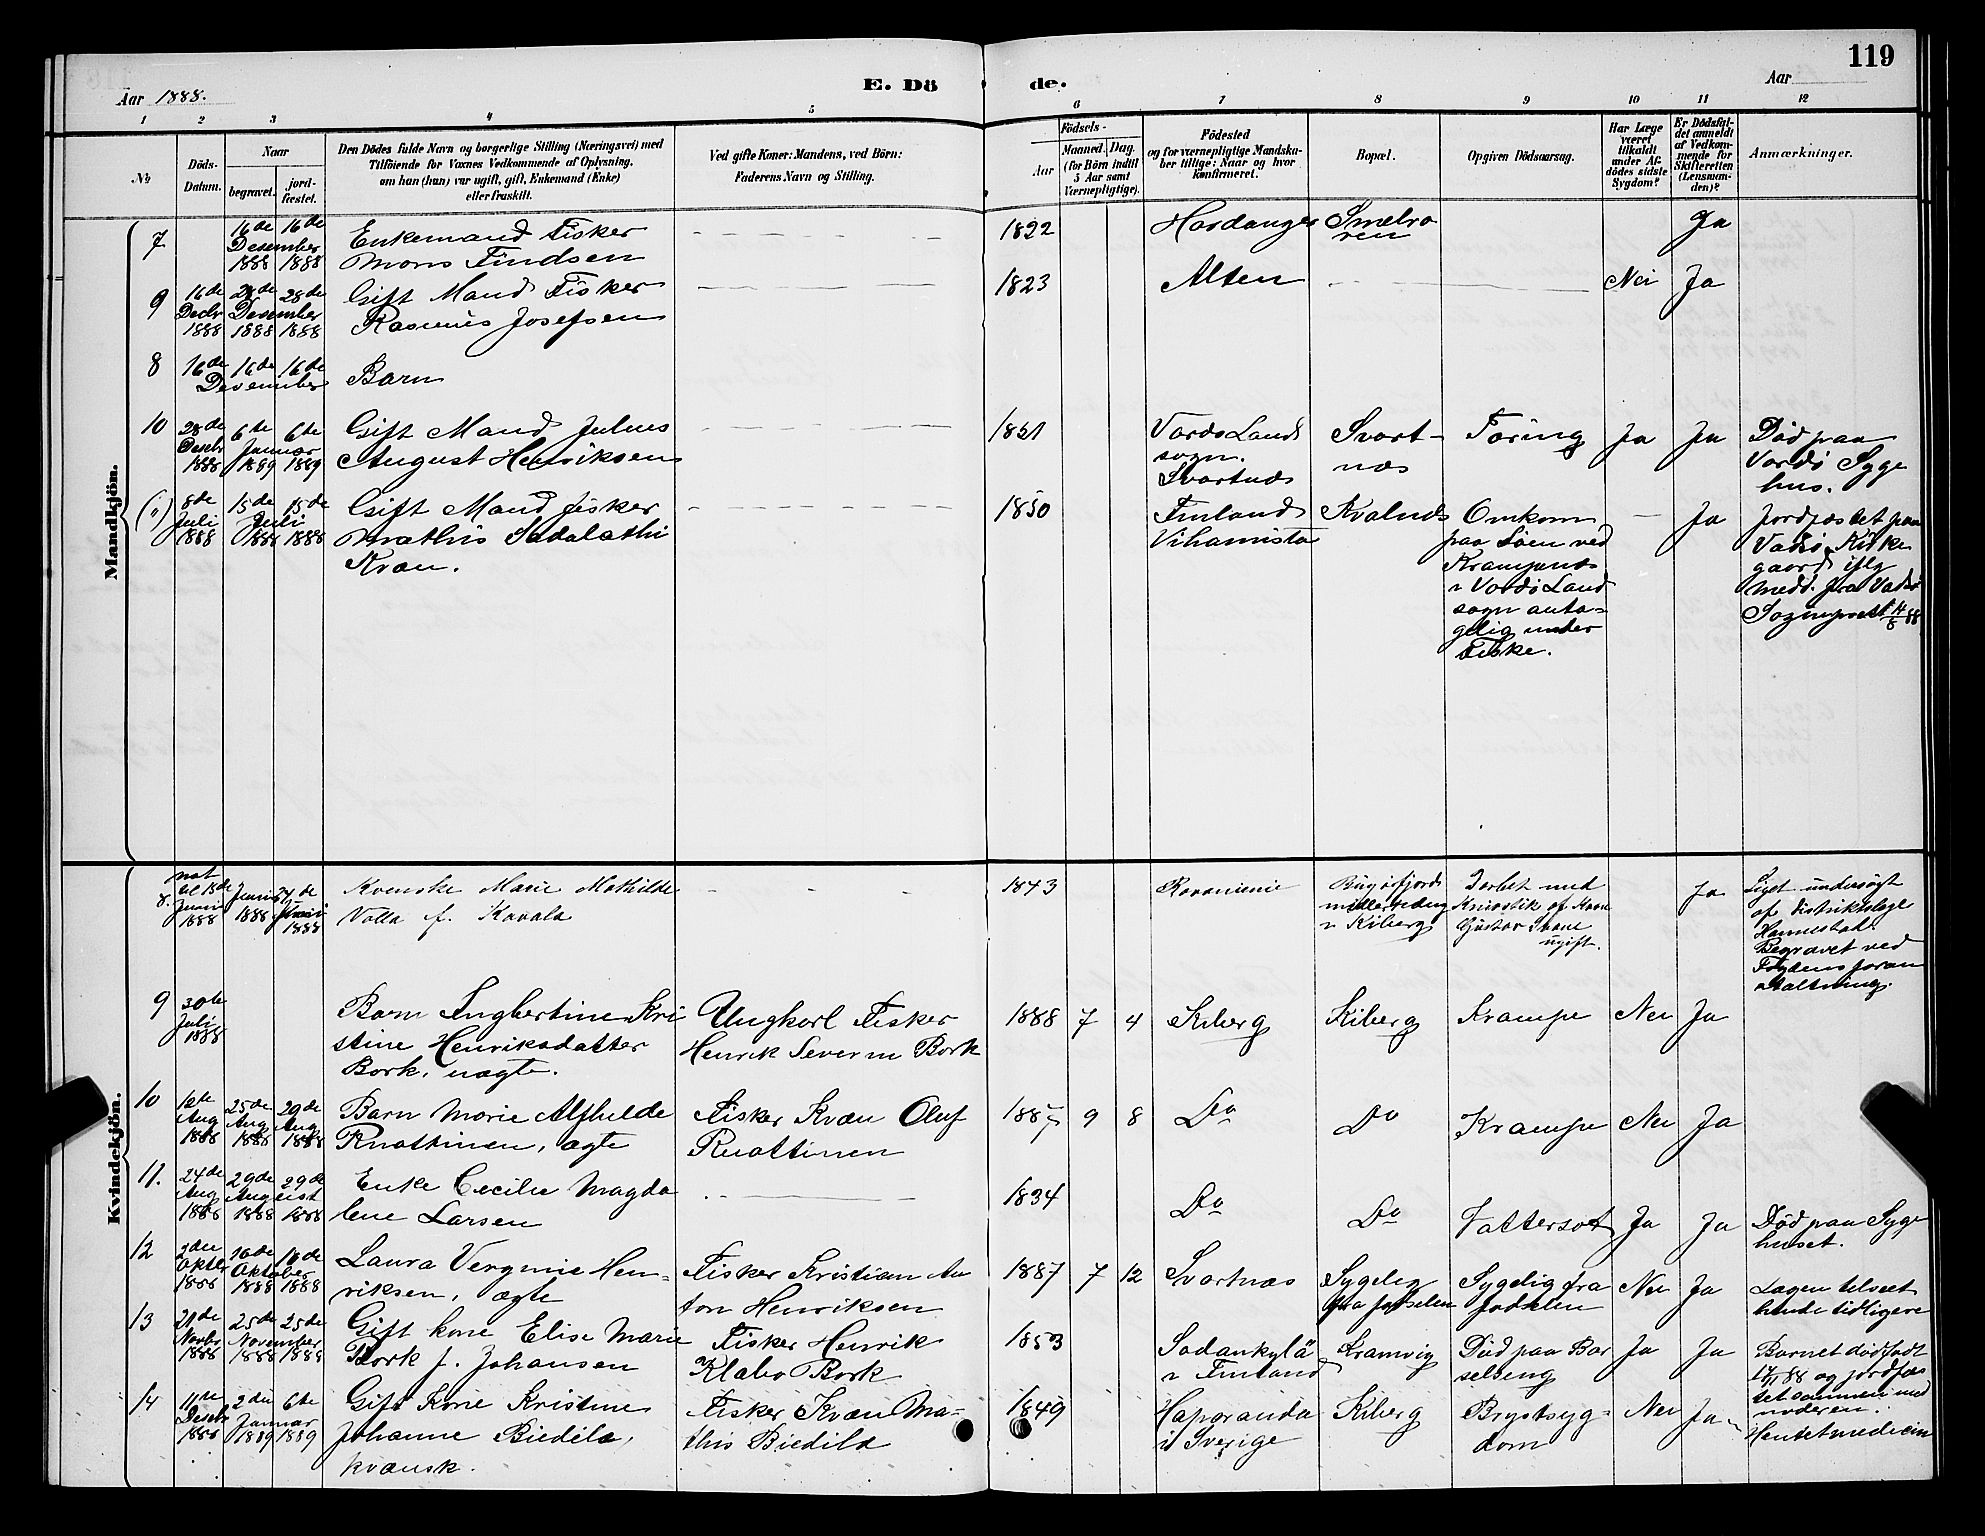 119
Aar 1888.
E. Dö
de.
Aar
1 2 3 4 5 6 7 8 9 10 11 12
№
Döds-
Datum.
Naar
begravet.
jord-
fæstet.
Den Dödes fulde Navn og borgerlige Stilling (Næringsvei) med
Tilföiende for Voxnes Vedkommende af Oplysning,
om han (hun) var ugift, gift, Enkemand (Enke)
eller fraskilt.
Ved gifte Koner: Mandens, ved Börn:
Faderens Navn og Stilling.
Födsels-
Aar
Maaned. Dag.
(for Börn indtil
5 Aar samt
Værnepligtige).
Födested
og for værnepligtige Mandska-
ber tillige: Naar og hvor
Konfirmeret.
Bopæl.
Opgiven Dödsaarsag.
Har Læge
været
tilkaldt
under Af-
dödes sidste
Sygdom?
Er Dödsfal-
det anmeldt
af Vedkom-
mende for
Skifteretten
(Lensman-
den)?
Anmærkninger.
Mandkjön.
7
16de 16de
Desember
1888 1888
Enkemand Fisker
Mons Findsen
1822
Hardanger
Ja
9
16de 28de 28de
Decbr Desember
1888 1888 1888
Gift Mand Fisker
Rasmus Josefsen
1823
Alten
Nei
Ja
8
16de 16de 16de
Desember
Barn
10
28de 6te 6te
Desbr Januar
1888 1889 1889
Gift Mand Julius
August Henriksen
1851
Vardö Land
sogn.
Svartnæs
Svart-
næs
Tæring
Ja
Ja
Död paa
Vardö Syge
hus.
8de 15de 15de
Juli Juli
1888 1888 1888
Gift Mand fisker
Mathis
Kvæn.
1850
Finland
Kvalnæs
Omkom
paa Söen ved
Krampenæs
i Vardö Land
sogn anta-
gelig under
Fiske.
Ja
Jordfæstet paa
Vadsö Kirke
gaard iflg
medd. fra Vadsö
Sogneprest
Kvindekjön.
8.
nat
til 18de
Juni
1888
Juni
1888
24de
Juni
1888
Kvenske Marie Mathilde
Volla f. Kavala
1843
Bugöfjord
midlertidig
i Kiberg
Dræbt med
Knivstik af
Gustav
ugift.
Ja
Liget undersögt
af Distriktslæge
Begravet ved
Fogdens foran
staltning.
9
30te
Juli
1888
Barn Ingbertine Kri
stine Henriksdatter
Bork, uægte.
Ungkarl Fisker
Henrik Severin Bork
1888 7 4
Kiberg
Kiberg
Krampe
Nei
Ja
10
12te 25de 29de
Aug Aug Aug
1888 1888 1888
Barn Marie Alfhilde
Ruottinen, ægte
Fisker Kvæn Oluf
Ruottinen
1887 9 8
Do
Do
Krampe
Nei
Ja
11.
24de 29de 29de
Aug August
1888 1888 1888
Enke Cecilie Magda
lene Larsen
1834
Do
Do
Vattersot
Ja
Ja
Död paa Syge
huset.
12
2den 16de 16de
Oktbr Oktober
1888 1888 1888
Laura Verginie Hen-
riksen, ægte
Fisker Kristian An
ton Henriksen
1887 7 12
Svartnæs
Sygelig
fra födselen
Sygelig fra
födselen
Nei
Ja
Lægen tilseet
hende tidligere
13
21de 25de 25de
Novbr November
1888 1888 1888
Gift kone Elise Marie
Bork f. Johansen
Fisker Henrik
Klabo Bork
1853
Sodankylä
i Finland
Kramvig
Död paa Bar
selseng
Ja
Ja
Barnet dödfödt
88 og jordfæs
tet sammen med
moderen.
14
11te 2den 6te
Desbr Januar
1888 1889 1889
Gift Kone Kristine
Johanne Biedilæ,
kvænsk.
Fisker Kvæn Ma-
this Biedilæ
1849
Haparanda
i Sverige
Kiberg
Brystsyg-
dom
Nei
Ja
Hentet medicin